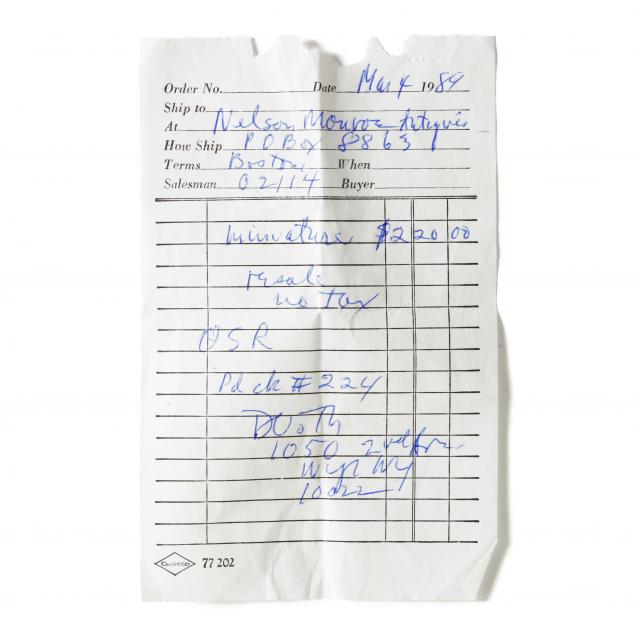 Order No. Date Mar 4 1989
Ship to
At Nelson Monroe Antiques
How Ship P O Box 8863
Terms Boston, When
Salesman 02114 Buyer
miniature $220 00
resale
no tax
OSR
Pd ck # 224
1050 2nd Ave
NY NY
10022
77 202